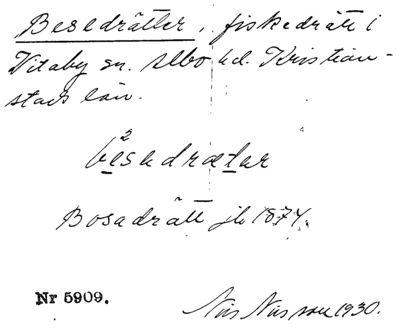 Besedrätter, fiskedrätt i
Vitaby sn. Albo hd. Kristian-
stads län.
besadrætar
Bosadrätt jb 1874.
Nr 5909.
Nils Nilsson 1930.